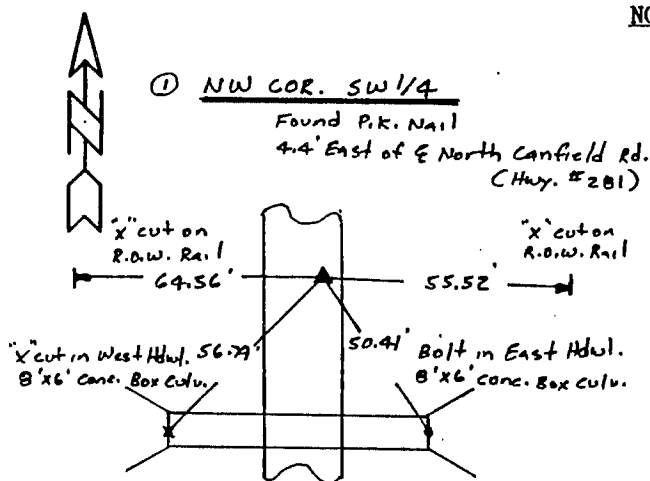 NO
① NW COR. SW 1/4
Found P.K. Nail
4.4' East of ℄ North Canfield Rd.
(Hwy. #281)
"x" cut on
R.O.W. Rail
"x" cut on
R.O.W. Rail
64.56'
55.52'
"x" cut in West Hdwl.
8'x6' conc. Box Culv.
56.79'
50.41'
Bolt in East Hdwl.
8'x6' conc. Box Culv.